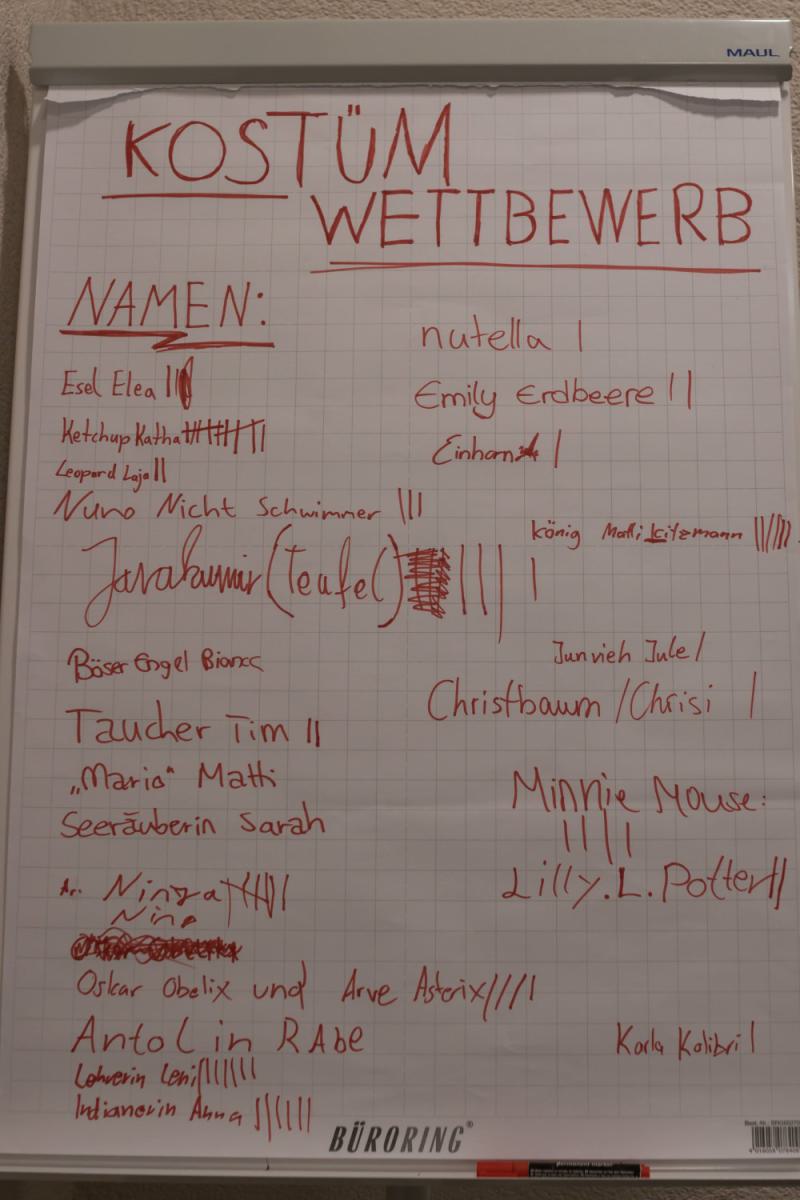 MAUL
KOSTÜM
WETTBEWERB
NAMEN:
Esel Elea
Ketchup Katha
Leopard Laja
Nuno Nicht Schwimmer
(Teufel)
Böser Engel Bianca
Taucher Tim
„Mario“ Matti
Seeräuberin Sarah
Ninga
Nino
Oskar Obelix und Arve Asterix
Antolin RAbe
Lehrerin Leni
Indianerin Anna
nutella
Emily Erdbeere
Einhorn
könig Matti kitzmann
Jule
Christbaum / Chrisi
Minnie Mouse:
Lilly.L.Potter
Karla Kolibri
BÜRORING®
permanent marker